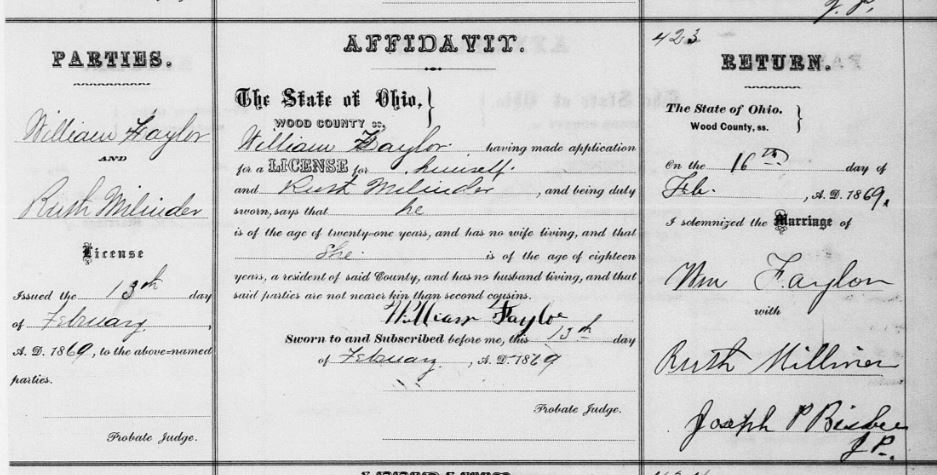 J. P.
PARTIES.
William Faylor
AND
Ruth Milinder
License
Issued the 13th day
of February,
A. D. 1869, to the above-named
parties.
Probate Judge.
AFFIDAVIT.
The State of Ohio,
WOOD COUNTY ss.
William Faylor having made application
for a LICENSE for himself.
and Ruth Milinder, and being duly
sworn, says that he
is of the age of twenty-one years, and has no wife living, and that
She is of the age of eighteen
years, a resident of said County, and has no husband living, and that
said parties are not nearer kin than second cousins.
William Faylor
Sworn to and Subscribed before me, this 13th day
of February, A. D. 1869
Probate Judge.
423
RETURN.
The State of Ohio.
Wood County, ss.
On the 16th day of
Feb., A. D. 1869.
I solemnized the Marriage of
Wm Faylor
with
Ruth Milliner
Joseph P Bisbee
J. P.